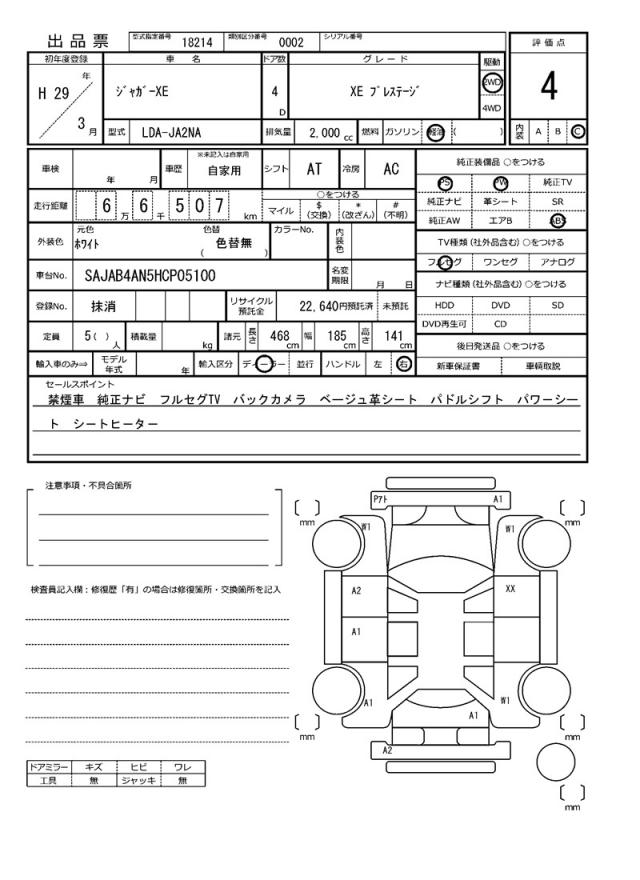 出品票 型式指定番号 18214 類別区分番号 0002 シリアル番号
評価点
初年度登録 車名 ドア数 グレード 駆動
H 29 年 ジャガーXE 4 D XE プレステージ 2WD 4
3 月 4WD
型式 LDA-JA2NA 排気量 2,000 cc 燃料 ガソリン 軽油 ( ) 内装 A B C
車検 年 月 車歴 ※未記入は自家用 自家用 シフト AT 冷房 AC 純正装備品 ○をつける
PS PW 純正TV
走行距離 6 6 万 6 千 5 0 7 km ○をつける 純正ナビ 革シート SR
マイル $(交換) *(改ざん) #(不明) 純正AW エアB ABS
外装色 元色 ホワイト 色替 ( 色替無 ) カラーNo. 内装色 TV種類 (社外品含む) ○をつける
フルセグ ワンセグ アナログ
車台No. SAJAB4AN5HCP05100 名変期限 月 日 ナビ種類 (社外品含む) ○をつける
登録No. 抹消 リサイクル預託金 22,640円預託済 未預託 HDD DVD SD
DVD再生可 CD
定員 5 ( ) 人 積載量 kg 諸元 長さ 468 cm 幅 185 cm 高さ 141 cm 後日発送品 ○をつける
輸入車のみ⇒ モデル年式 年 輸入区分 ディーラー 並行 ハンドル 左 右 新車保証書 車輌取説
セールスポイント
禁煙車 純正ナビ フルセグTV バックカメラ ベージュ革シート パドルシフト パワーシー
ト シートヒーター
注意事項・不具合箇所
検査員記入欄：修復歴「有」の場合は修復箇所・交換箇所を記入
Pアト A1
mm mm
W1 W1
A2 XX
A1
A1 W1
A1
mm mm
A2
mm
ドアミラー キズ ヒビ ワレ
工具 無 ジャッキ 無